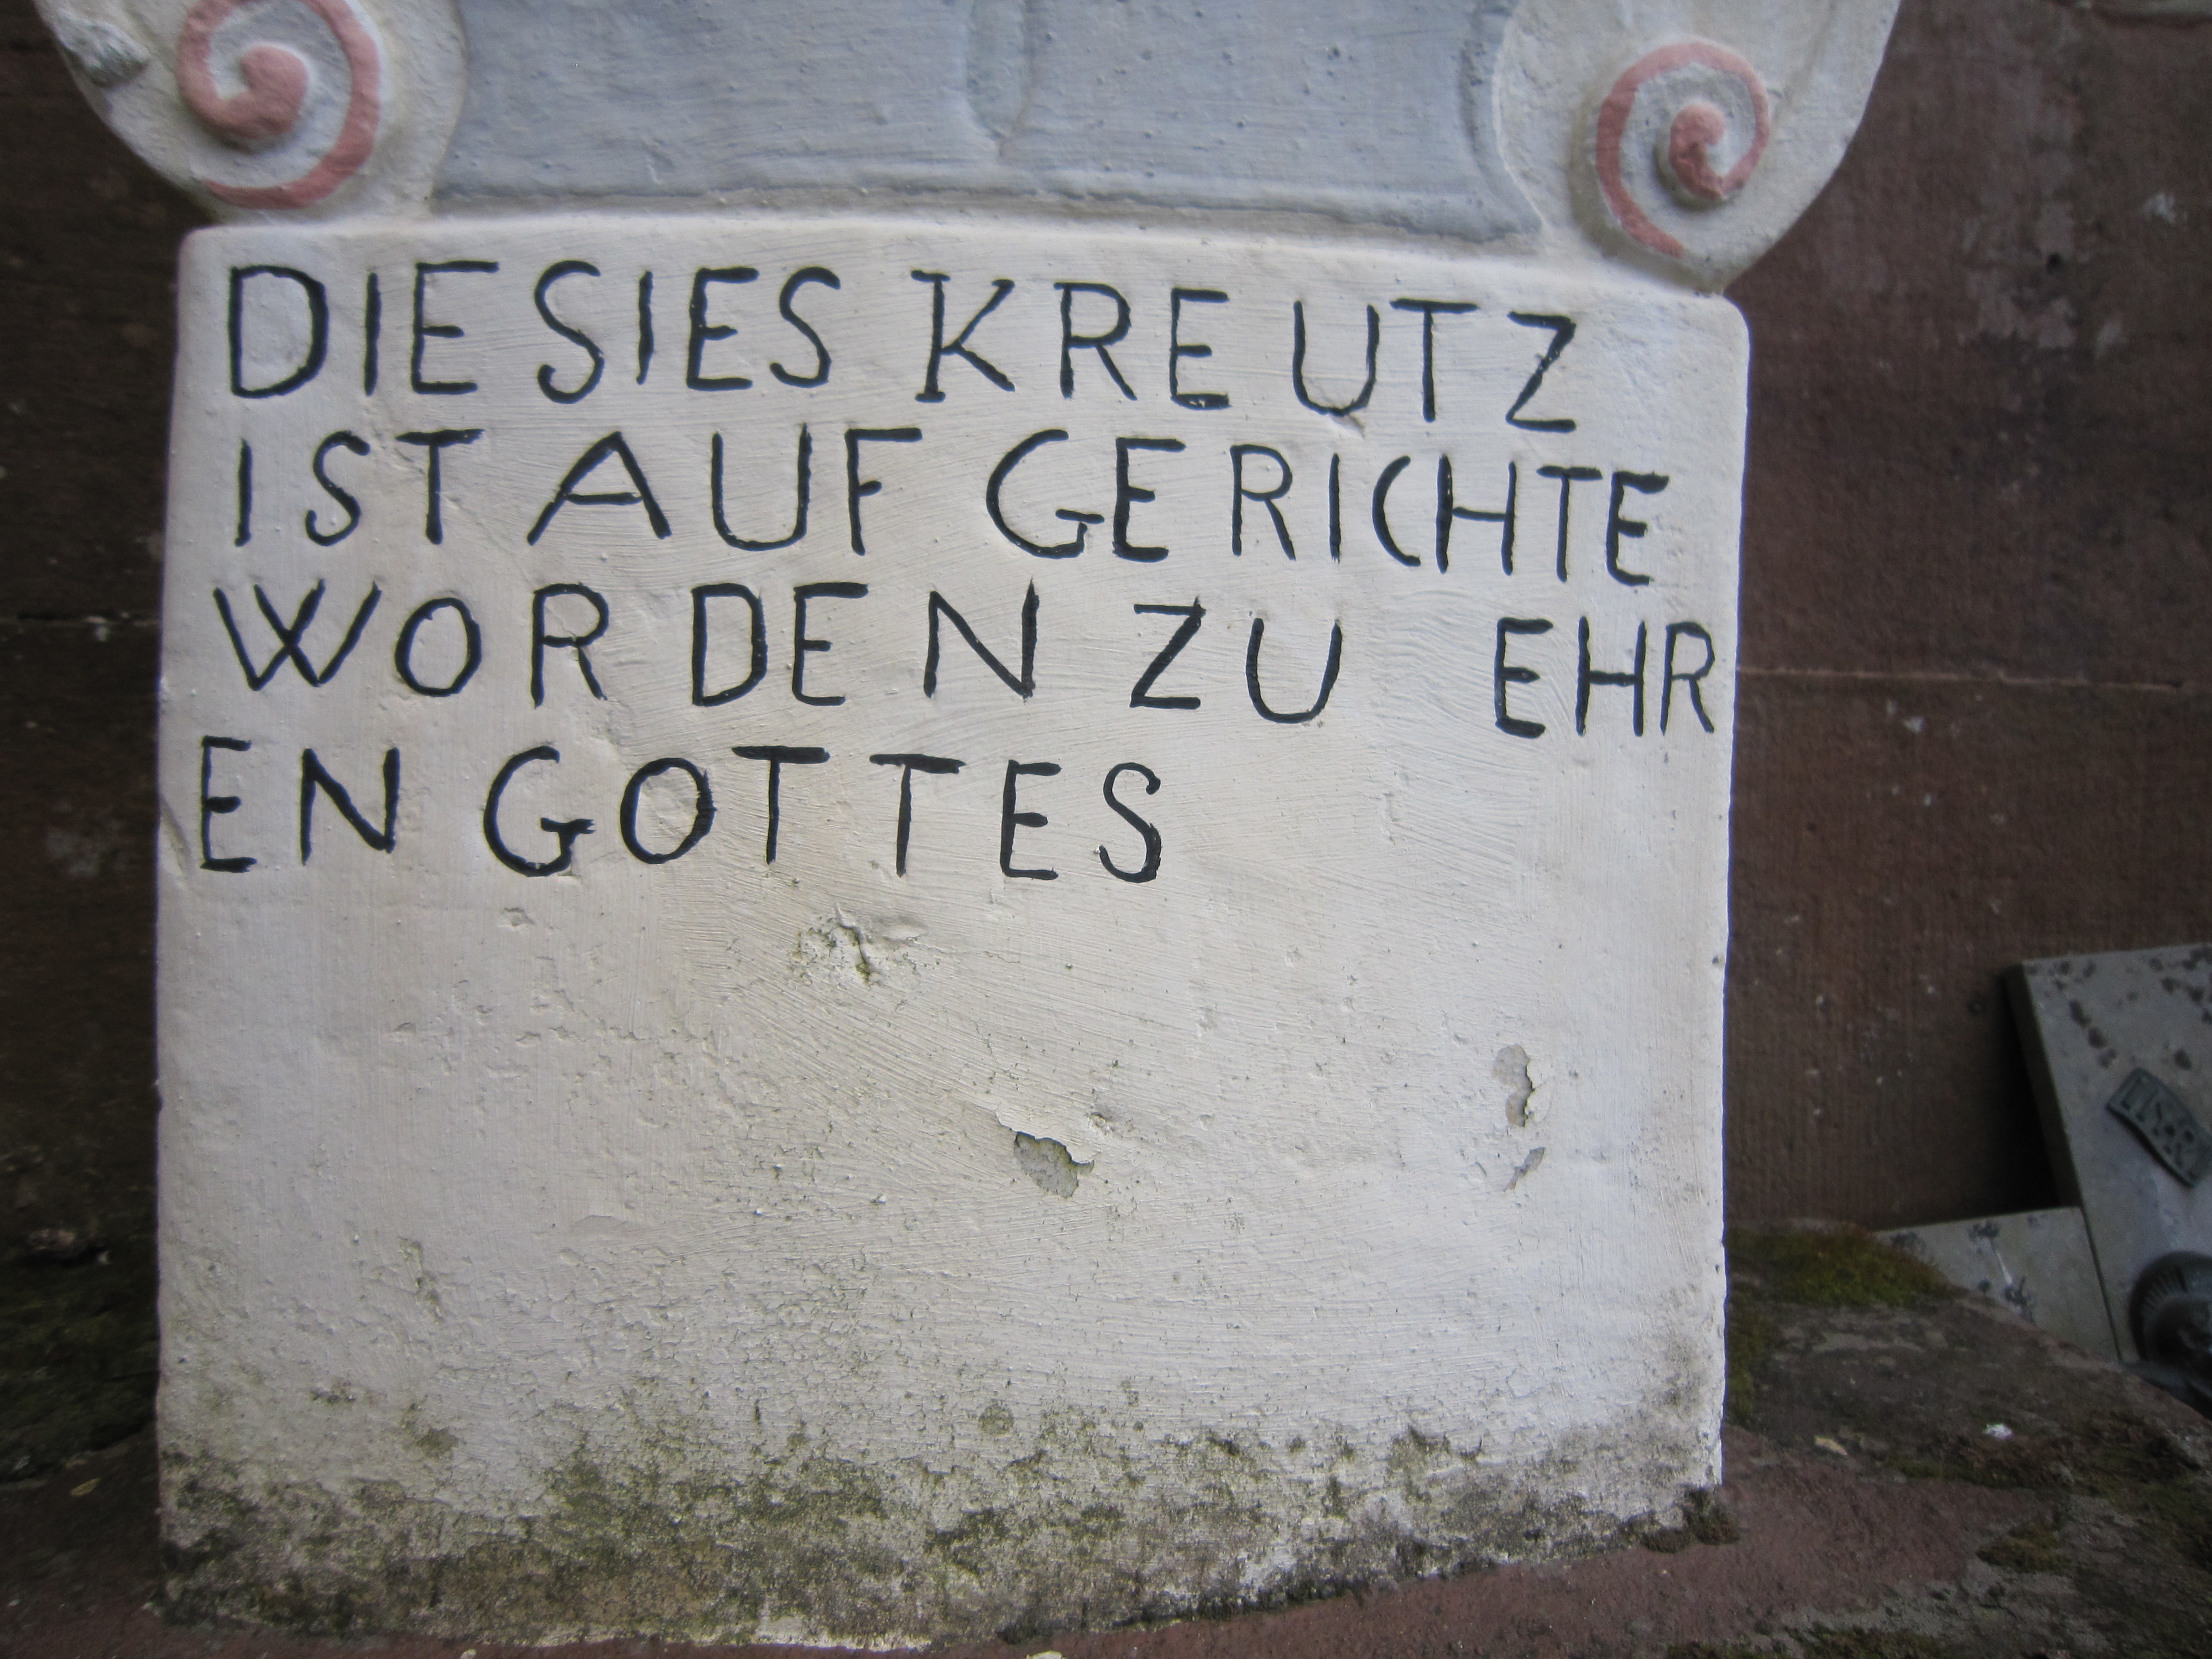 DIESIES KREUTZ
IST AUF GERICHTE
WORDEN ZU EHR
EN GOTTES